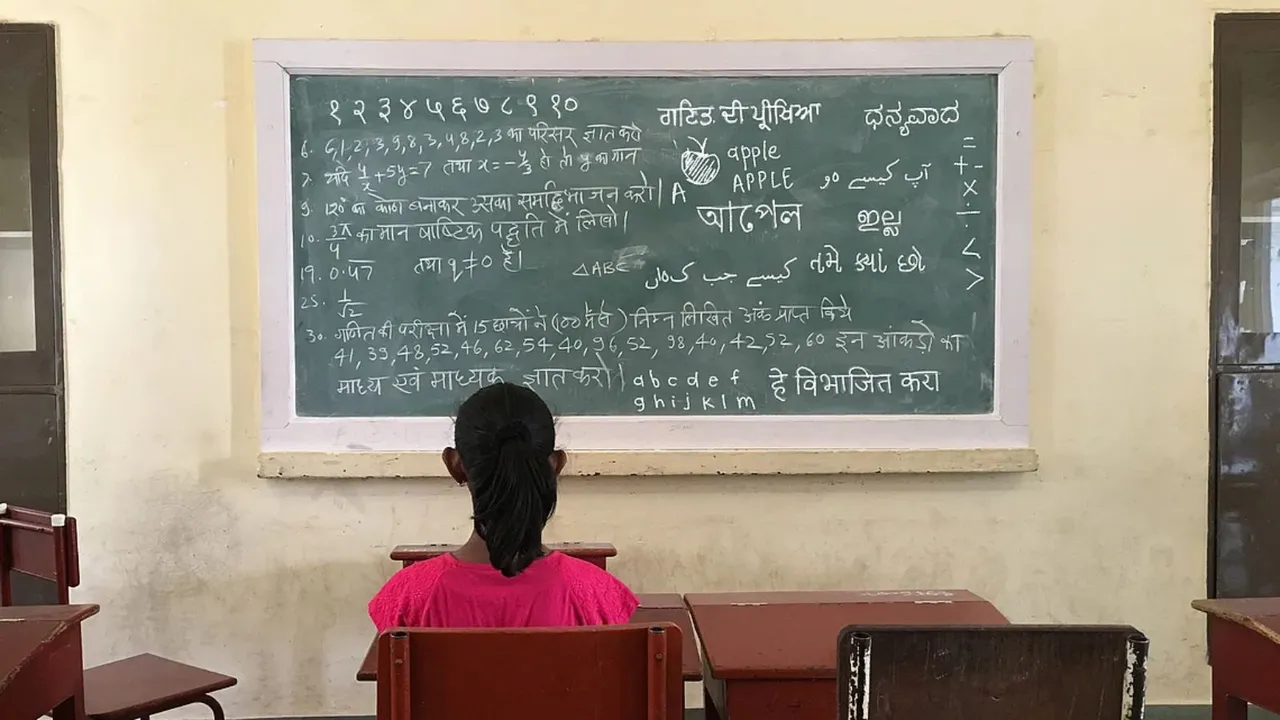 १ २ ३ ४ ५ ६ ७ ८ ९ १०
6. 6,1,2,3,9,8,3,4,8,2,3 का परिसर ज्ञात करो
7. यदि y/x + 5y = 7 तथा x = -4/3 हो तो y का मान
9. 120° का कोण बनाकर उसका समद्विभाजन करो।
10. 3π/4 का मान षाष्टिक पद्धति में लिखो।
19. 0.47 तथा q ≠ 0 है।
25. 1/√2
ਗਣਿਤ ਦੀ ਪ੍ਰੀਖਿਆ
ಧನ್ಯವಾದ
apple
A APPLE
আপেল
آپ کیسے ہو
ഇല്ല
△ABC
کیسے جب کی
તમે ક્યાં છો
=
+ -
x
÷
<
>
30. गणित की परीक्षा में 15 छात्रों ने (100 में से) निम्न लिखित अंक प्राप्त किये
41, 39, 48, 52, 46, 62, 54, 40, 96, 52, 98, 40, 42, 52, 60 इन आंकड़ो का
माध्य एवं माध्यक ज्ञात करो।
a b c d e f
g h i j k l m
हे विभाजित करा